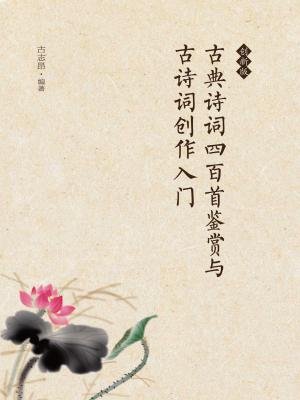 创新版
古典诗词四百首鉴赏与
古诗词创作入门
古志昂·编著